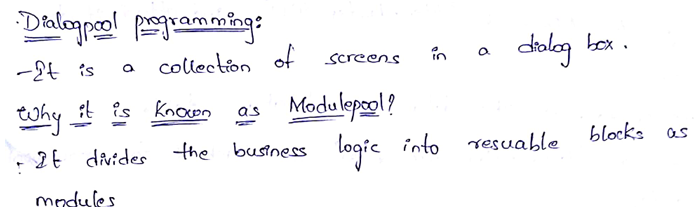 ·Dialogpool programming:
-It is a collection of screens in a dialog box.
Why it is Known as Modulepool?
- It divides the business logic into resuable blocks as
modules